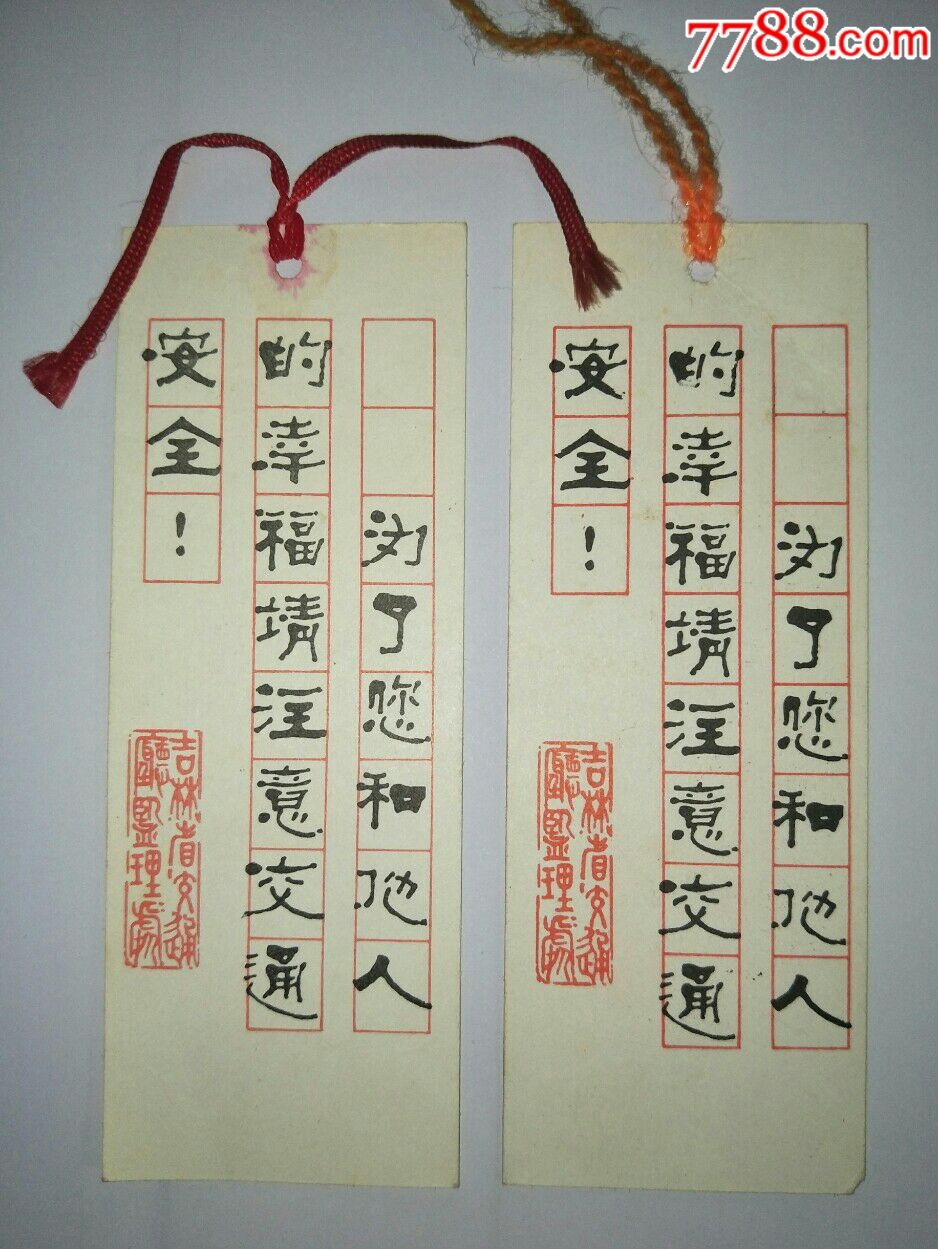 7788.com
为了您和他人
的幸福请注意交通
安全！
吉林省交通
廳監理處
为了您和他人
的幸福请注意交通
安全！
吉林省交通
廳監理處